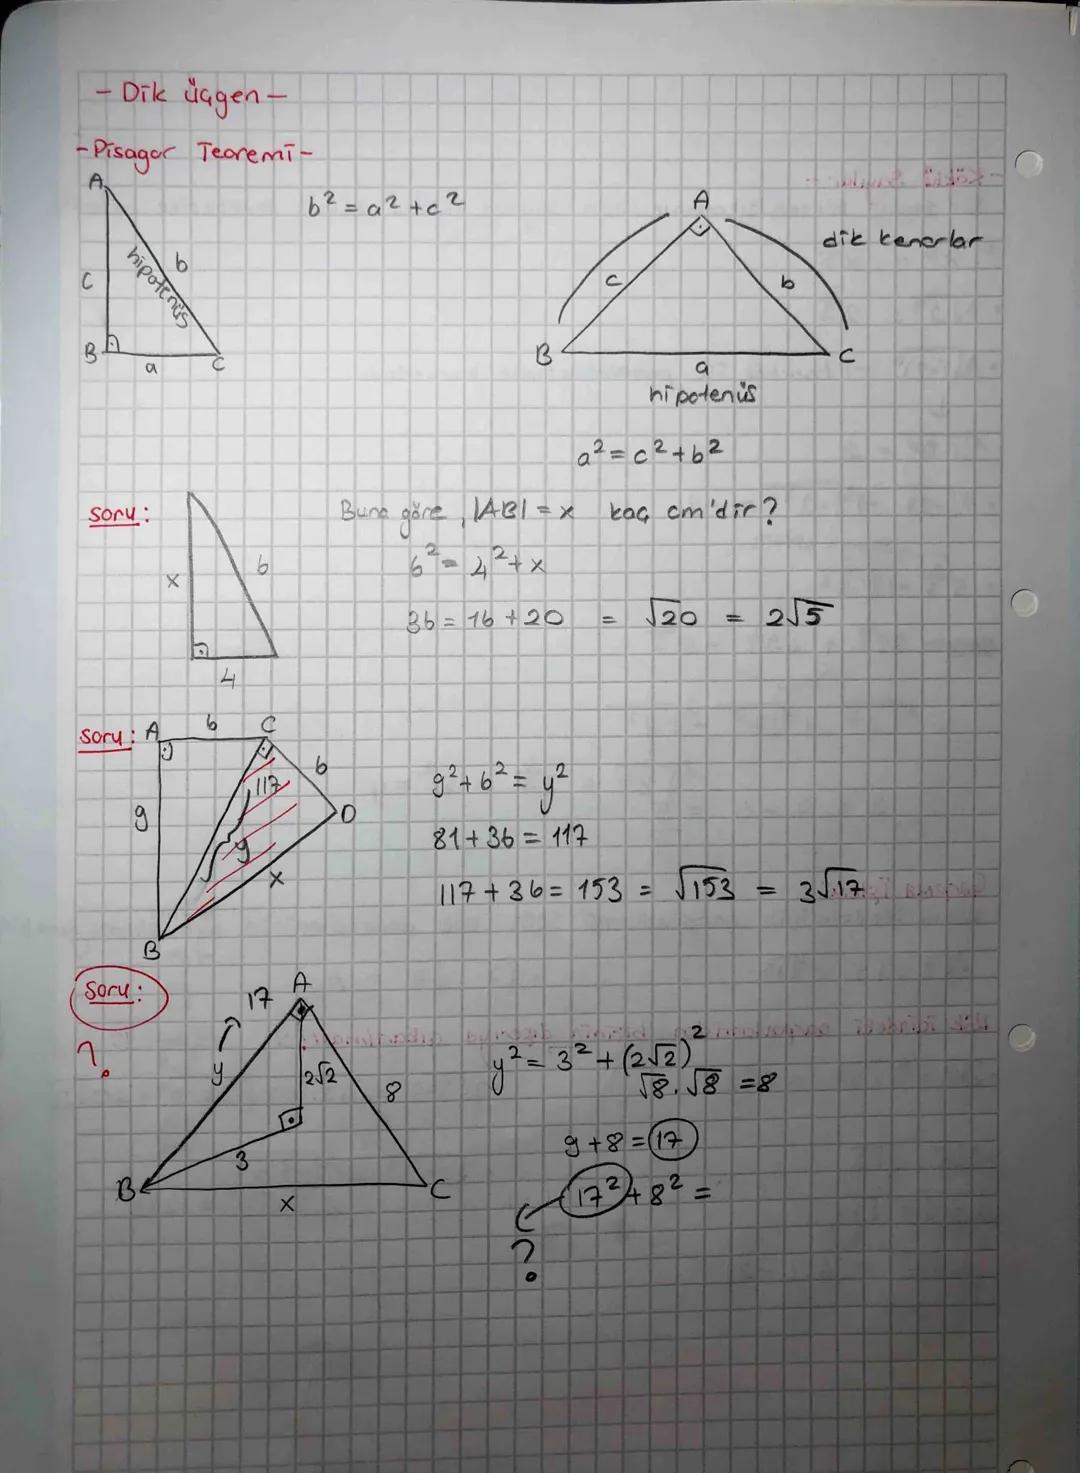 - Dik üçgen -
- Pisagor Teoremi -
A
c
hipotenüs
b
B
a
C
b² = a² + c²
A
dik kenarlar
c
b
B
a
C
hipotenüs
a² = c² + b²
soru:
x
6
4
Buna göre, |AB| = x kaç cm'dir?
6² = 4² + x
36 = 16 + 20 = √20 = 2√5
soru:
A
6
C
6
D
9
117
y
x
B
9² + 6² = y²
81 + 36 = 117
117 + 36 = 153 = √153 = 3√17
soru:
?
A
17
y
2√2
8
3
B
x
C
y² = 3² + (2√2)²
√8 . √8 = 8
9 + 8 = 17
17² + 8² =
?